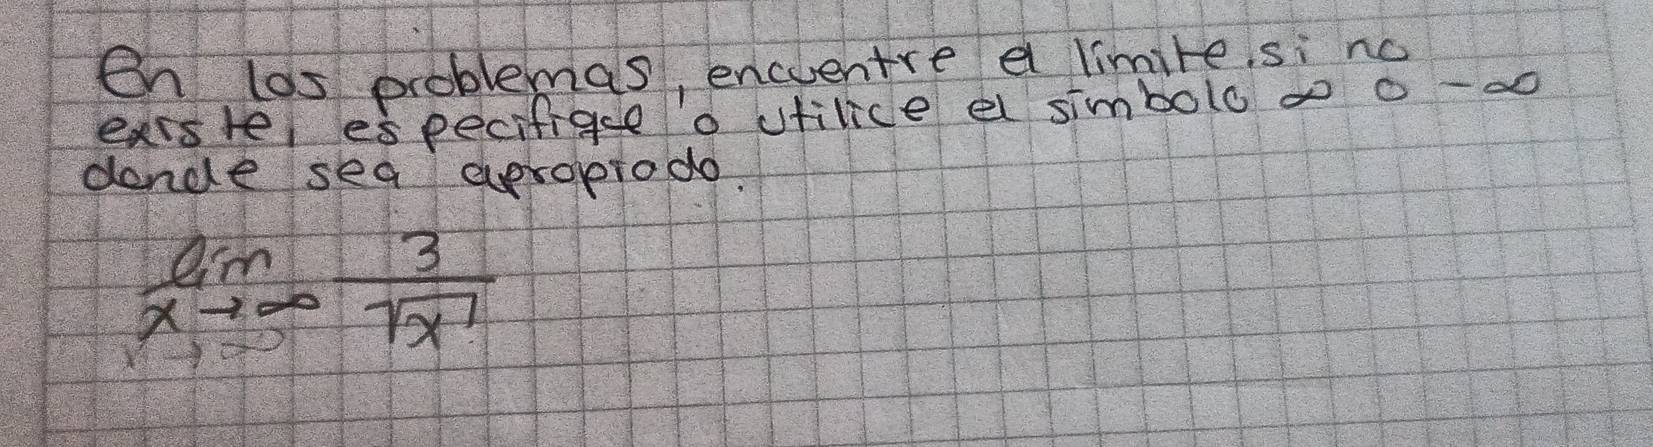 En los problemas, encuentre el límite, si no
existe, especifique o utilice el símbolo ∞ o -∞
donde sea apropiado.
lim 3
x→∞ √x
x→∞